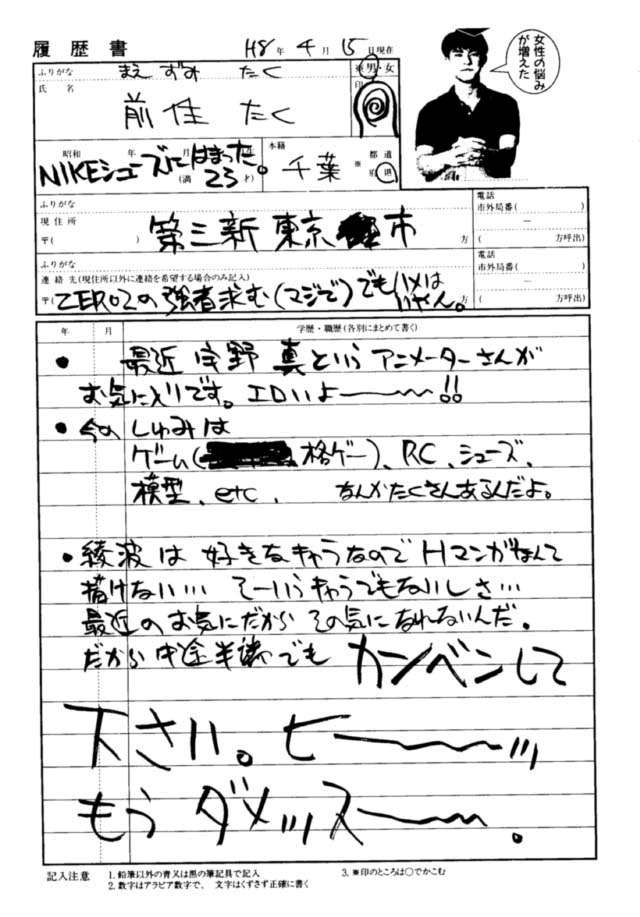 履歴書 H8年 4月 15日現在
女性の悩みが増えた
ふりがな まえ ずみ たく ※男・女
氏名 前住 たく 印
昭和 年 月 日 本籍 都道
NIKEシューズにはまった。
(満 23才) 千葉 ※ 府県
ふりがな 電話
現住所 第三新東京市 市外局番( )
〒( ) 方 ( 方呼出)
ふりがな 電話
連絡先(現住所以外に連絡を希望する場合のみ記入) 市外局番( )
〒( ZERO2の強者求む(マジで)でもハメはいやん。 方 ( 方呼出)
年 月 学歴・職歴(各別にまとめて書く)
● 最近 宇野 真というアニメーターさんが
お気に入りです。エロいよ〜〜!!
● 今の しゅみは
ゲーム( 格ゲー)、RC、シューズ、
模型、etc. なんかたくさんあるんだよ。
● 綾波は 好きなキャラなので Hマンガなんて
描けない… そーいうキャラでもないしさ…
最近のお気にだから その気に なれないんだ。
だから 中途半端でも カンベンして
下さい。ヒー〜〜ッ
もう ダメッスー〜。
記入注意 1.鉛筆以外の青又は黒の筆記具で記入 3.※印のところは○でかこむ
2.数字はアラビア数字で、文字はくずさず正確に書く